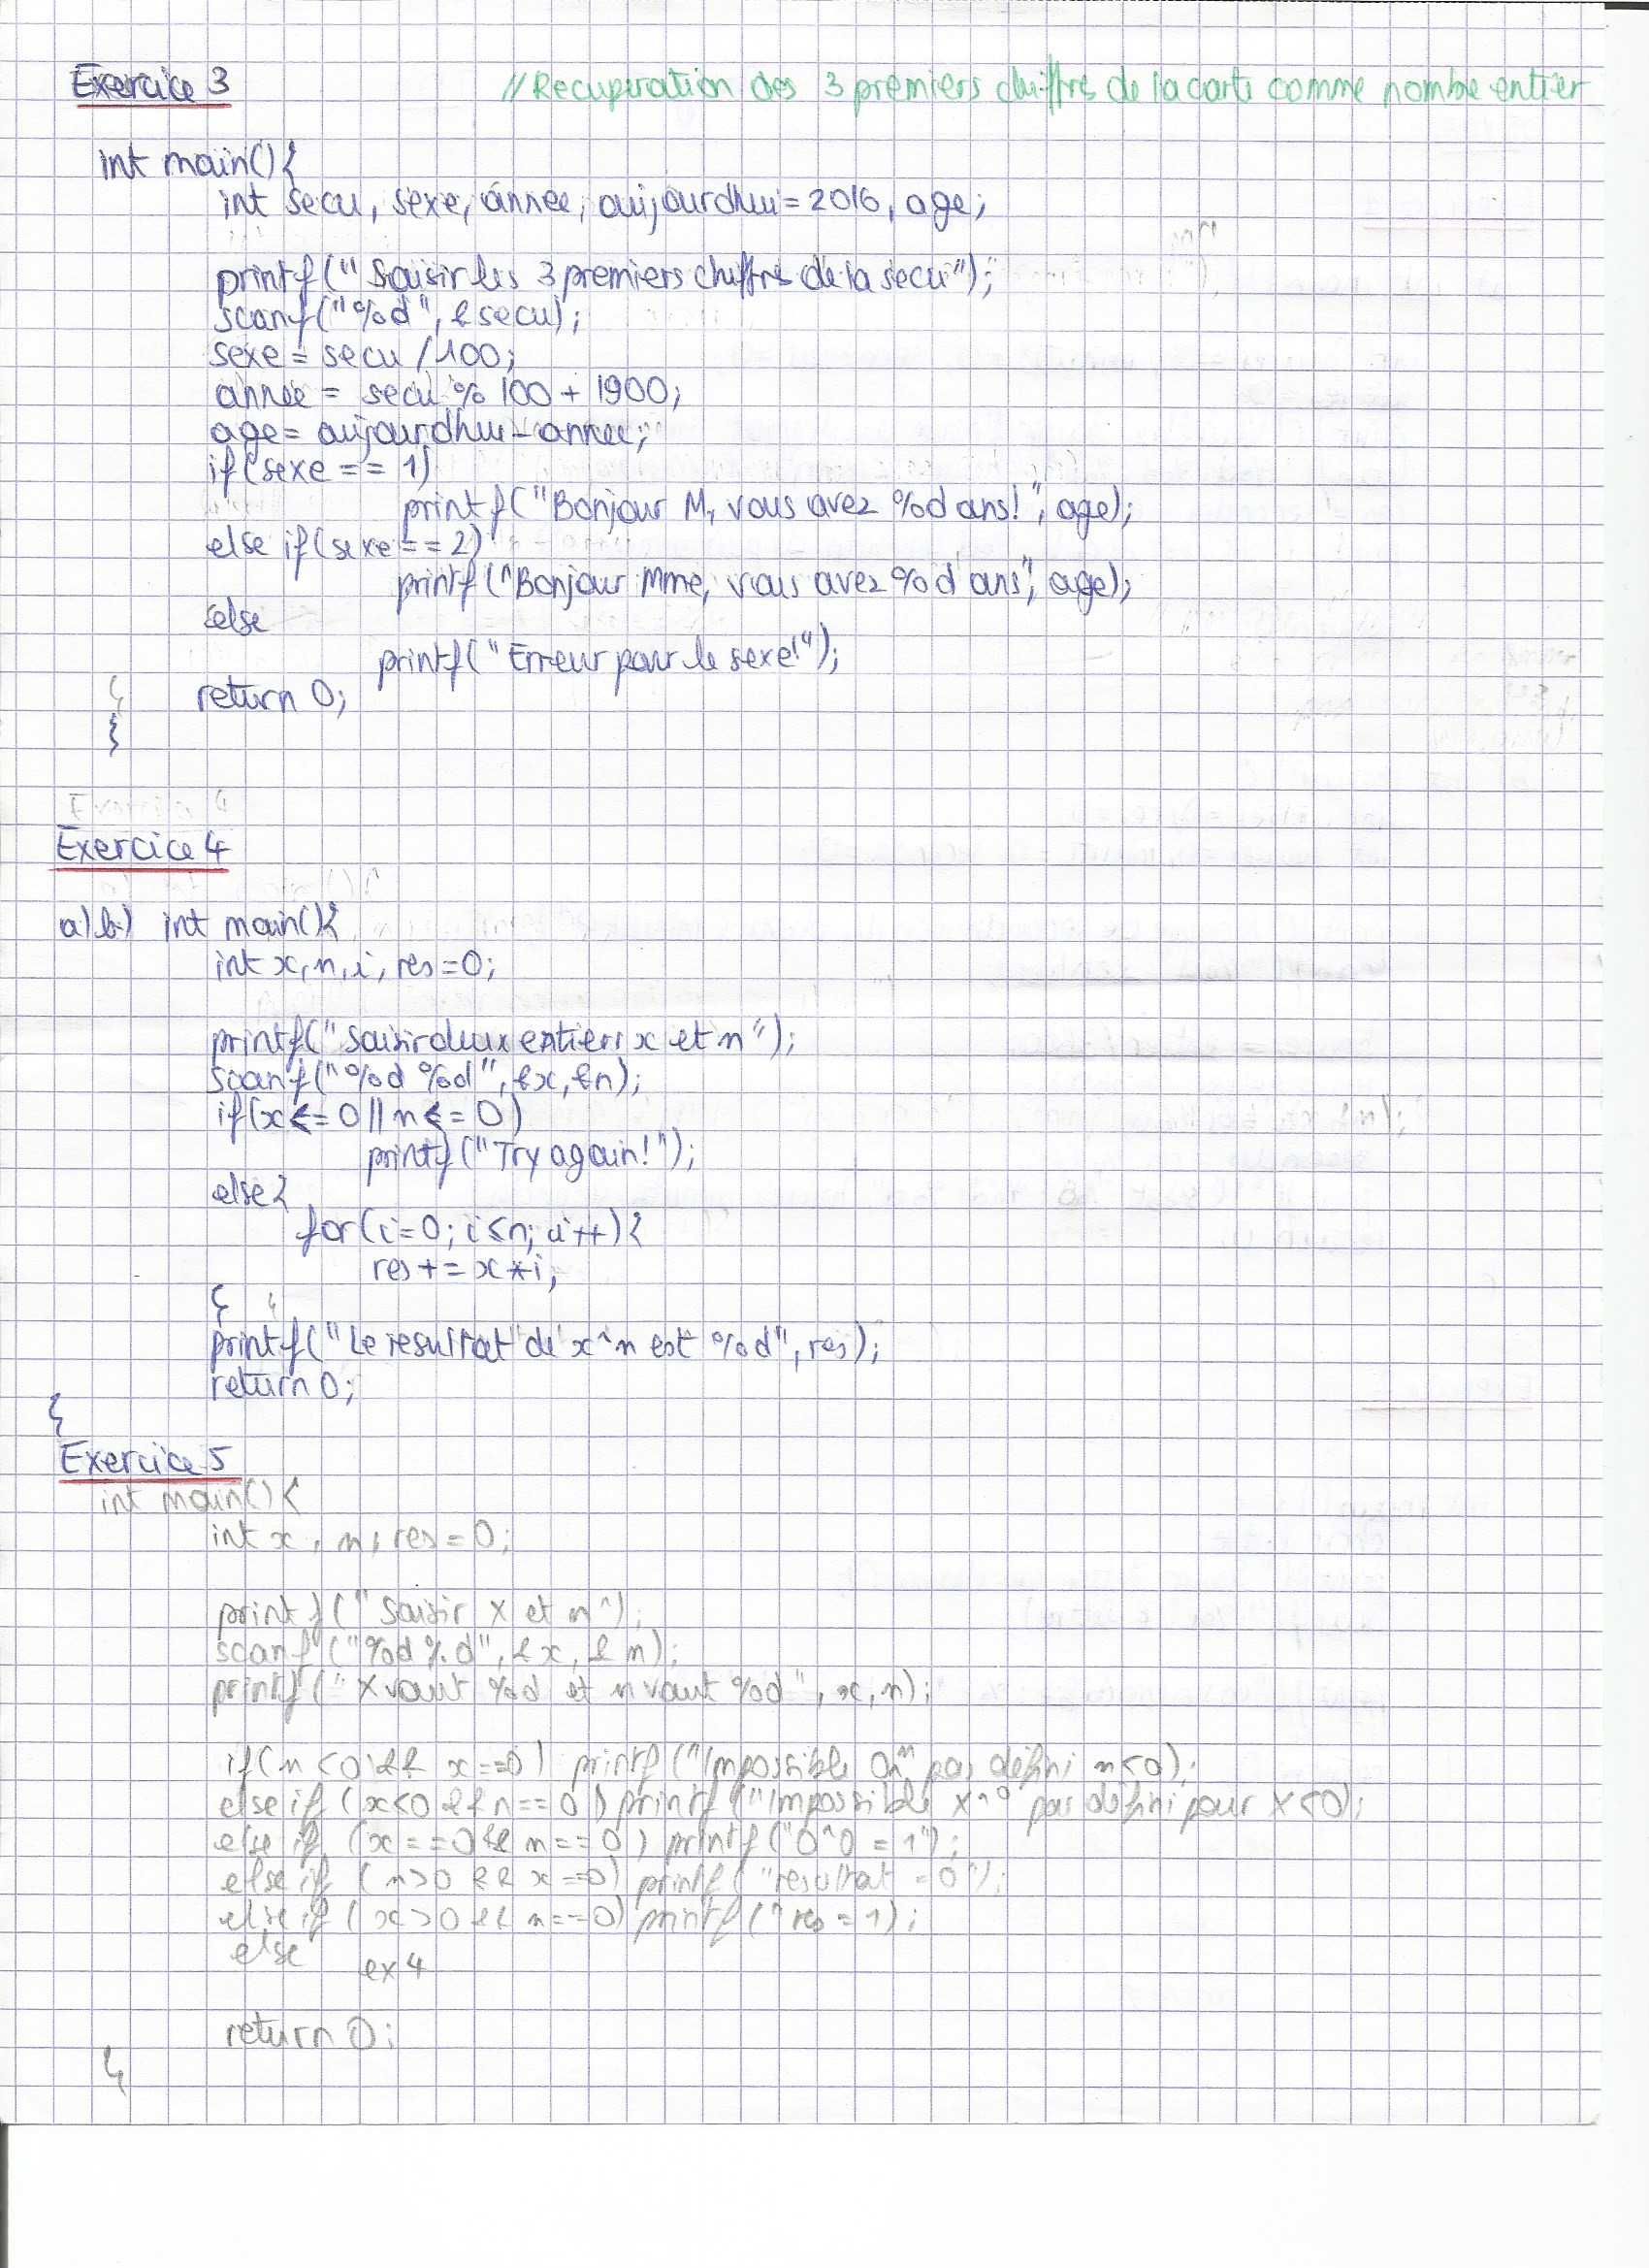 Exercice 3
//Recuperation des 3 premiers chiffres de la carte comme nombre entier
int main(){
int secu, sexe, année, aujourdhui = 2016, age;
printf("Saisir les 3 premiers chiffres de la secu");
scanf("%d", &secu);
sexe = secu / 100;
année = secu % 100 + 1900;
age = aujourdhui - annee;
if(sexe == 1)
printf("Bonjour M, vous avez %d ans!", age);
else if(sexe == 2)
printf("Bonjour Mme, vous avez %d ans", age);
else
printf("Erreur pour le sexe!");
return 0;
}
Exercice 4
a) b) int main(){
int x, n, i, res = 0;
printf("Saisir deux entiers x et n");
scanf("%d %d", &x, &n);
if(x <= 0 || n <= 0)
printf("Try again!");
else {
for(i=0; i≤n; i++){
res += x*i;
}
printf("Le resultat de x^n est %d", res);
return 0;
}
Exercice 5
int main(){
int x, n, res = 0;
printf("Saisir x et n");
scanf("%d %d", &x, &n);
printf("X vaut %d et n vaut %d", x, n);
if(n<0 && x==0) printf("Impossible 0^n pas défini n<0);
else if (x<0 && n==0) printf("Impossible x^0 pas défini pour x<0);
else if (x==0 && n==0) printf("0^0 = 1");
else if (n>0 && x==0) printf("resultat = 0");
else if (x>0 && n==0) printf("res = 1);
else ex 4
return 0;
}